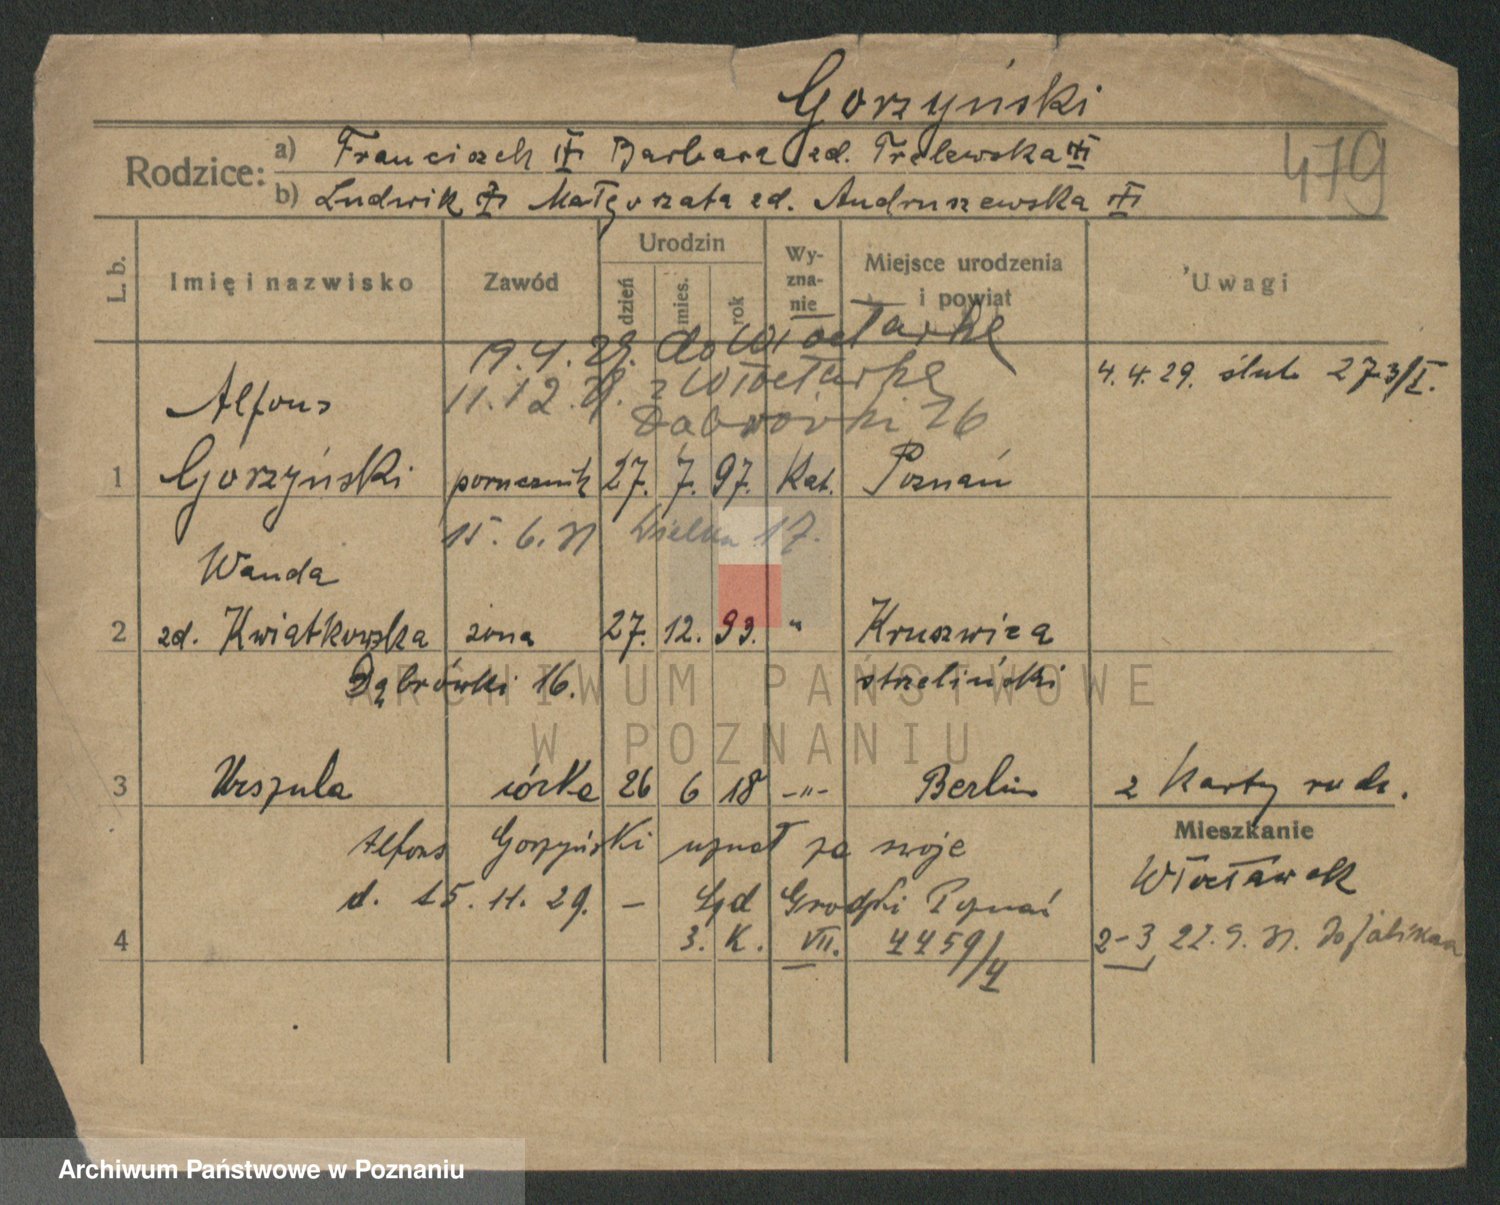 Gorzyński
479
Rodzice: a) Franciszek Barbara zd. Trelewska
b) Ludwik Małgorzata zd. Andruszewska
L. b. Imię i nazwisko Zawód Urodzin dzień mies. rok Wyznanie Miejsce urodzenia i powiat Uwagi
19.4.29. do Włocławka
11.12.29. z Włocławka
Dąbrówki 16
4.4.29. ślub 273/I.
Alfons
1 Gorzyński porucznik 27. 7. 97. Kat. Poznań
15.6.31 Wielka 17.
Wanda
2 zd. Kwiatkowska żona 27. 12. 93. " Kruszwica
Dąbrówki 16. strzeliński
3 Urszula córka 26 6 18 -"- Berlin 2 Karty rodz.
Mieszkanie
Włocławek
Alfons Gorzyński uznał za swoje
d. 15.11.29. – Sąd Grodzki Poznań
4 3. K. VII. 4459/
2-3 22.9.31. do
ARCHIWUM PAŃSTWOWE
W POZNANIU
Archiwum Państwowe w Poznaniu